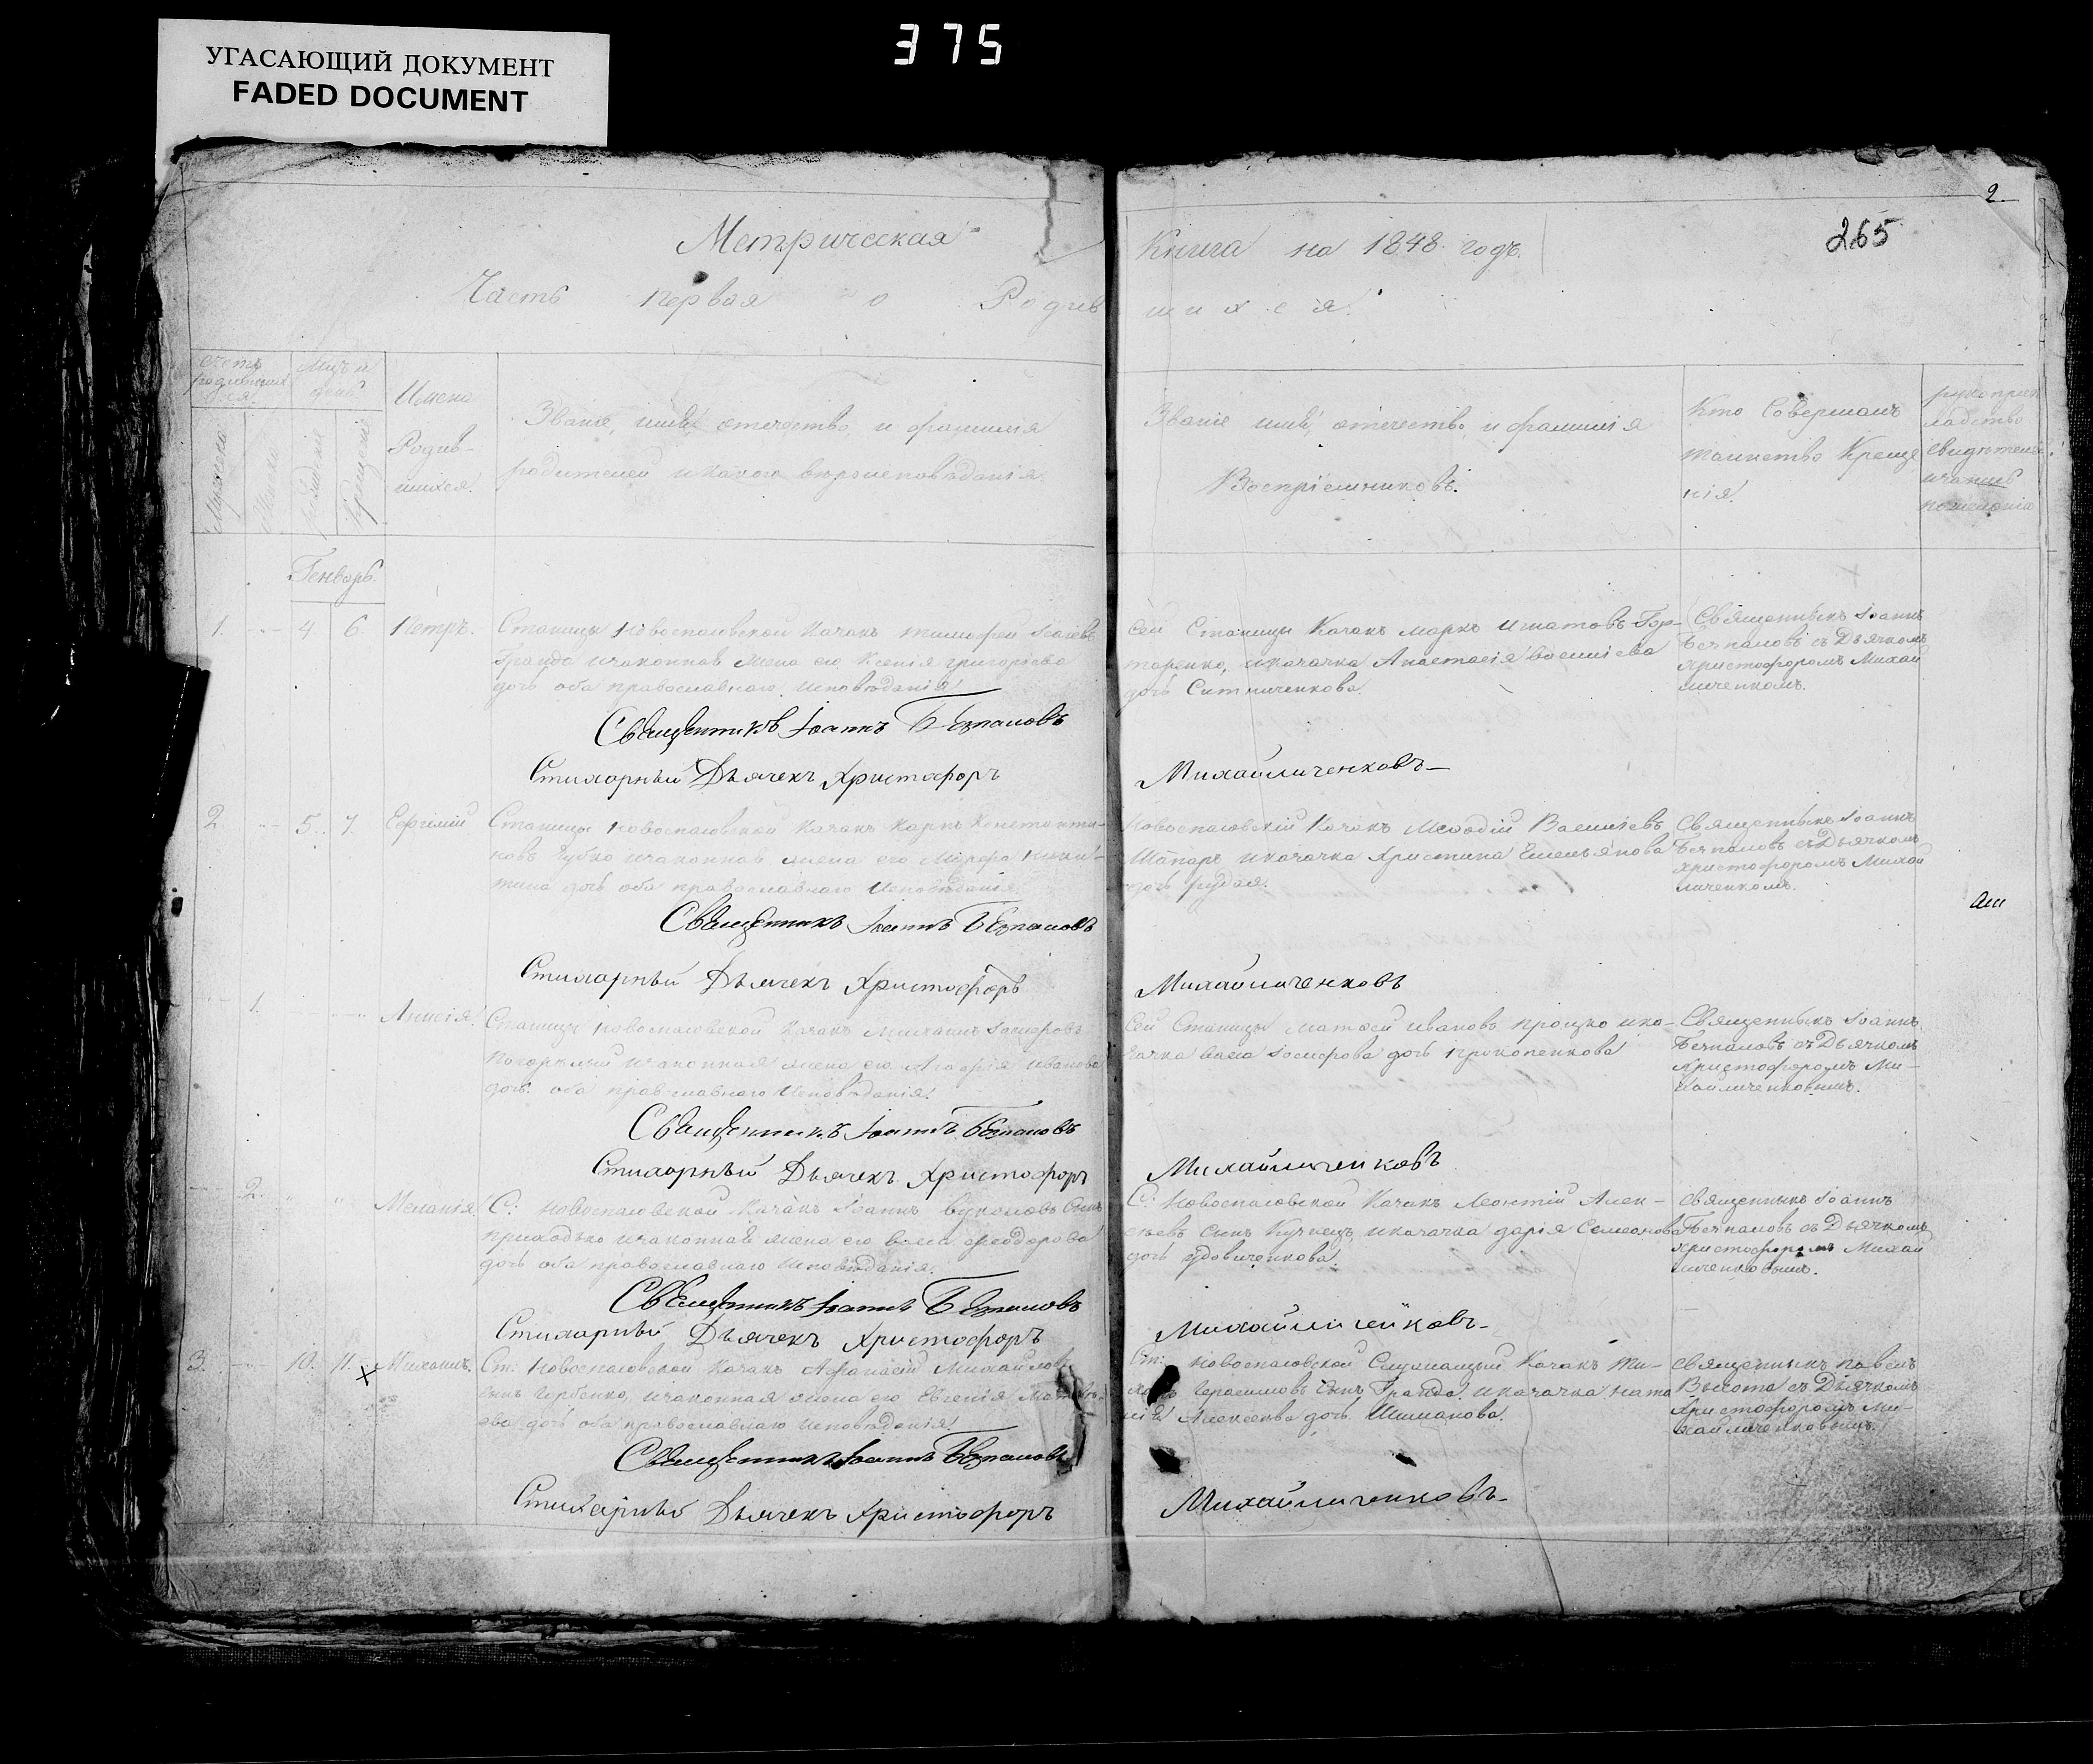 375
УГАСАЮЩИЙ ДОКУМЕНТ
FADED DOCUMENT
2
265
Метрическая Книга на 1848 годъ.
Часть первая о Родив шихся.
Имена
Родив-
шихся.
Званіе, имя, отечество, и фамилія
родителей и какого вѣроисповѣданія.
Званіе имя, отечество, и фамилія
Воспріемниковъ.
Кто Совершалъ
таинство Креще
нія.
Мужеска
Женска
Рожденіе
Крещеніе
Генварь.
1. 4 6. Петръ.
Станицы Новоспасовской Казакъ Тимофей
законная жена его Ксенія Григоріева
дочь оба православнаго исповѣданія.
Сей Станицы Казакъ Марко Игнатовъ Гор-
таренко, и казачка Анастасія Василіева
дочь Ситниченкова.
Священникъ Іоаннъ
Безпаловъ съ Дьячкомъ
Христофоромъ Михай
личенкомъ.
Священникъ Іоаннъ Безпаловъ
Стихарный Дьячекъ Христофоръ Михайличенковъ
2 5. 7. Евфимій
Станицы Новоспасовской Казакъ Карпъ Константи-
новъ Губко и законная жена его Марфа Ники-
тина дочь оба православнаго исповѣданія.
Новоспасовскій Казакъ Меѳодій Василіевъ
Шапарь и казачка Христина Емельянова
дочь Рудая.
Священникъ Іоаннъ
Безпаловъ съ Дьячкомъ
Христофоромъ Михай
личенкомъ.
Священникъ Іоаннъ Безпаловъ
Стихарный Дьячекъ Христофоръ Михайличенковъ
1. Анисія.
Станицы Новоспасовской Казакъ Михаилъ Іосифовъ
законная жена его Агафія Иванова
дочь оба православнаго исповѣданія.
Сей Станицы Матѳей Ивановъ Процко и ка-
зачка Васса Іосифова дочь Прокопенкова
Священникъ Іоаннъ
Безпаловъ съ Дьячкомъ
Христофоромъ Ми-
хайличенковымъ.
Священникъ Іоаннъ Безпаловъ
Стихарный Дьячекъ Христофоръ Михайличенковъ
2. Меланія.
С: Новоспасовской Казакъ Іоаннъ Вуколовъ Сынъ
Приходько и законная жена его Васса Феодорова
дочь оба православнаго исповѣданія.
С: Новоспасовской Казакъ Леонтій Алек-
сѣевъ Сынъ Кузнецъ, и казачка Дарія Семенова
дочь Удовиченкова.
Священникъ Іоаннъ
Безпаловъ съ Дьячкомъ
Христофоромъ Михай
личенковымъ.
Священникъ Іоаннъ Безпаловъ
Стихарный Дьячекъ Христофоръ Михайличенковъ
3. 10. 11. Михаилъ.
Ст: Новоспасовской Казакъ Афанасій Михайловъ
сынъ Щербенко, и законная жена его Евгенія
дочь оба православнаго исповѣданія.
Ст: Новоспасовской Служащій Казакъ
Герасимовъ Сынъ и казачка Ната
лія Алексеева дочь Шиманова.
Священникъ Павелъ
Высота съ Дьячкомъ
Христофоромъ Ми-
хайличенковымъ.
Священникъ Іоаннъ Безпаловъ
Стихарный Дьячекъ Христофоръ Михайличенковъ